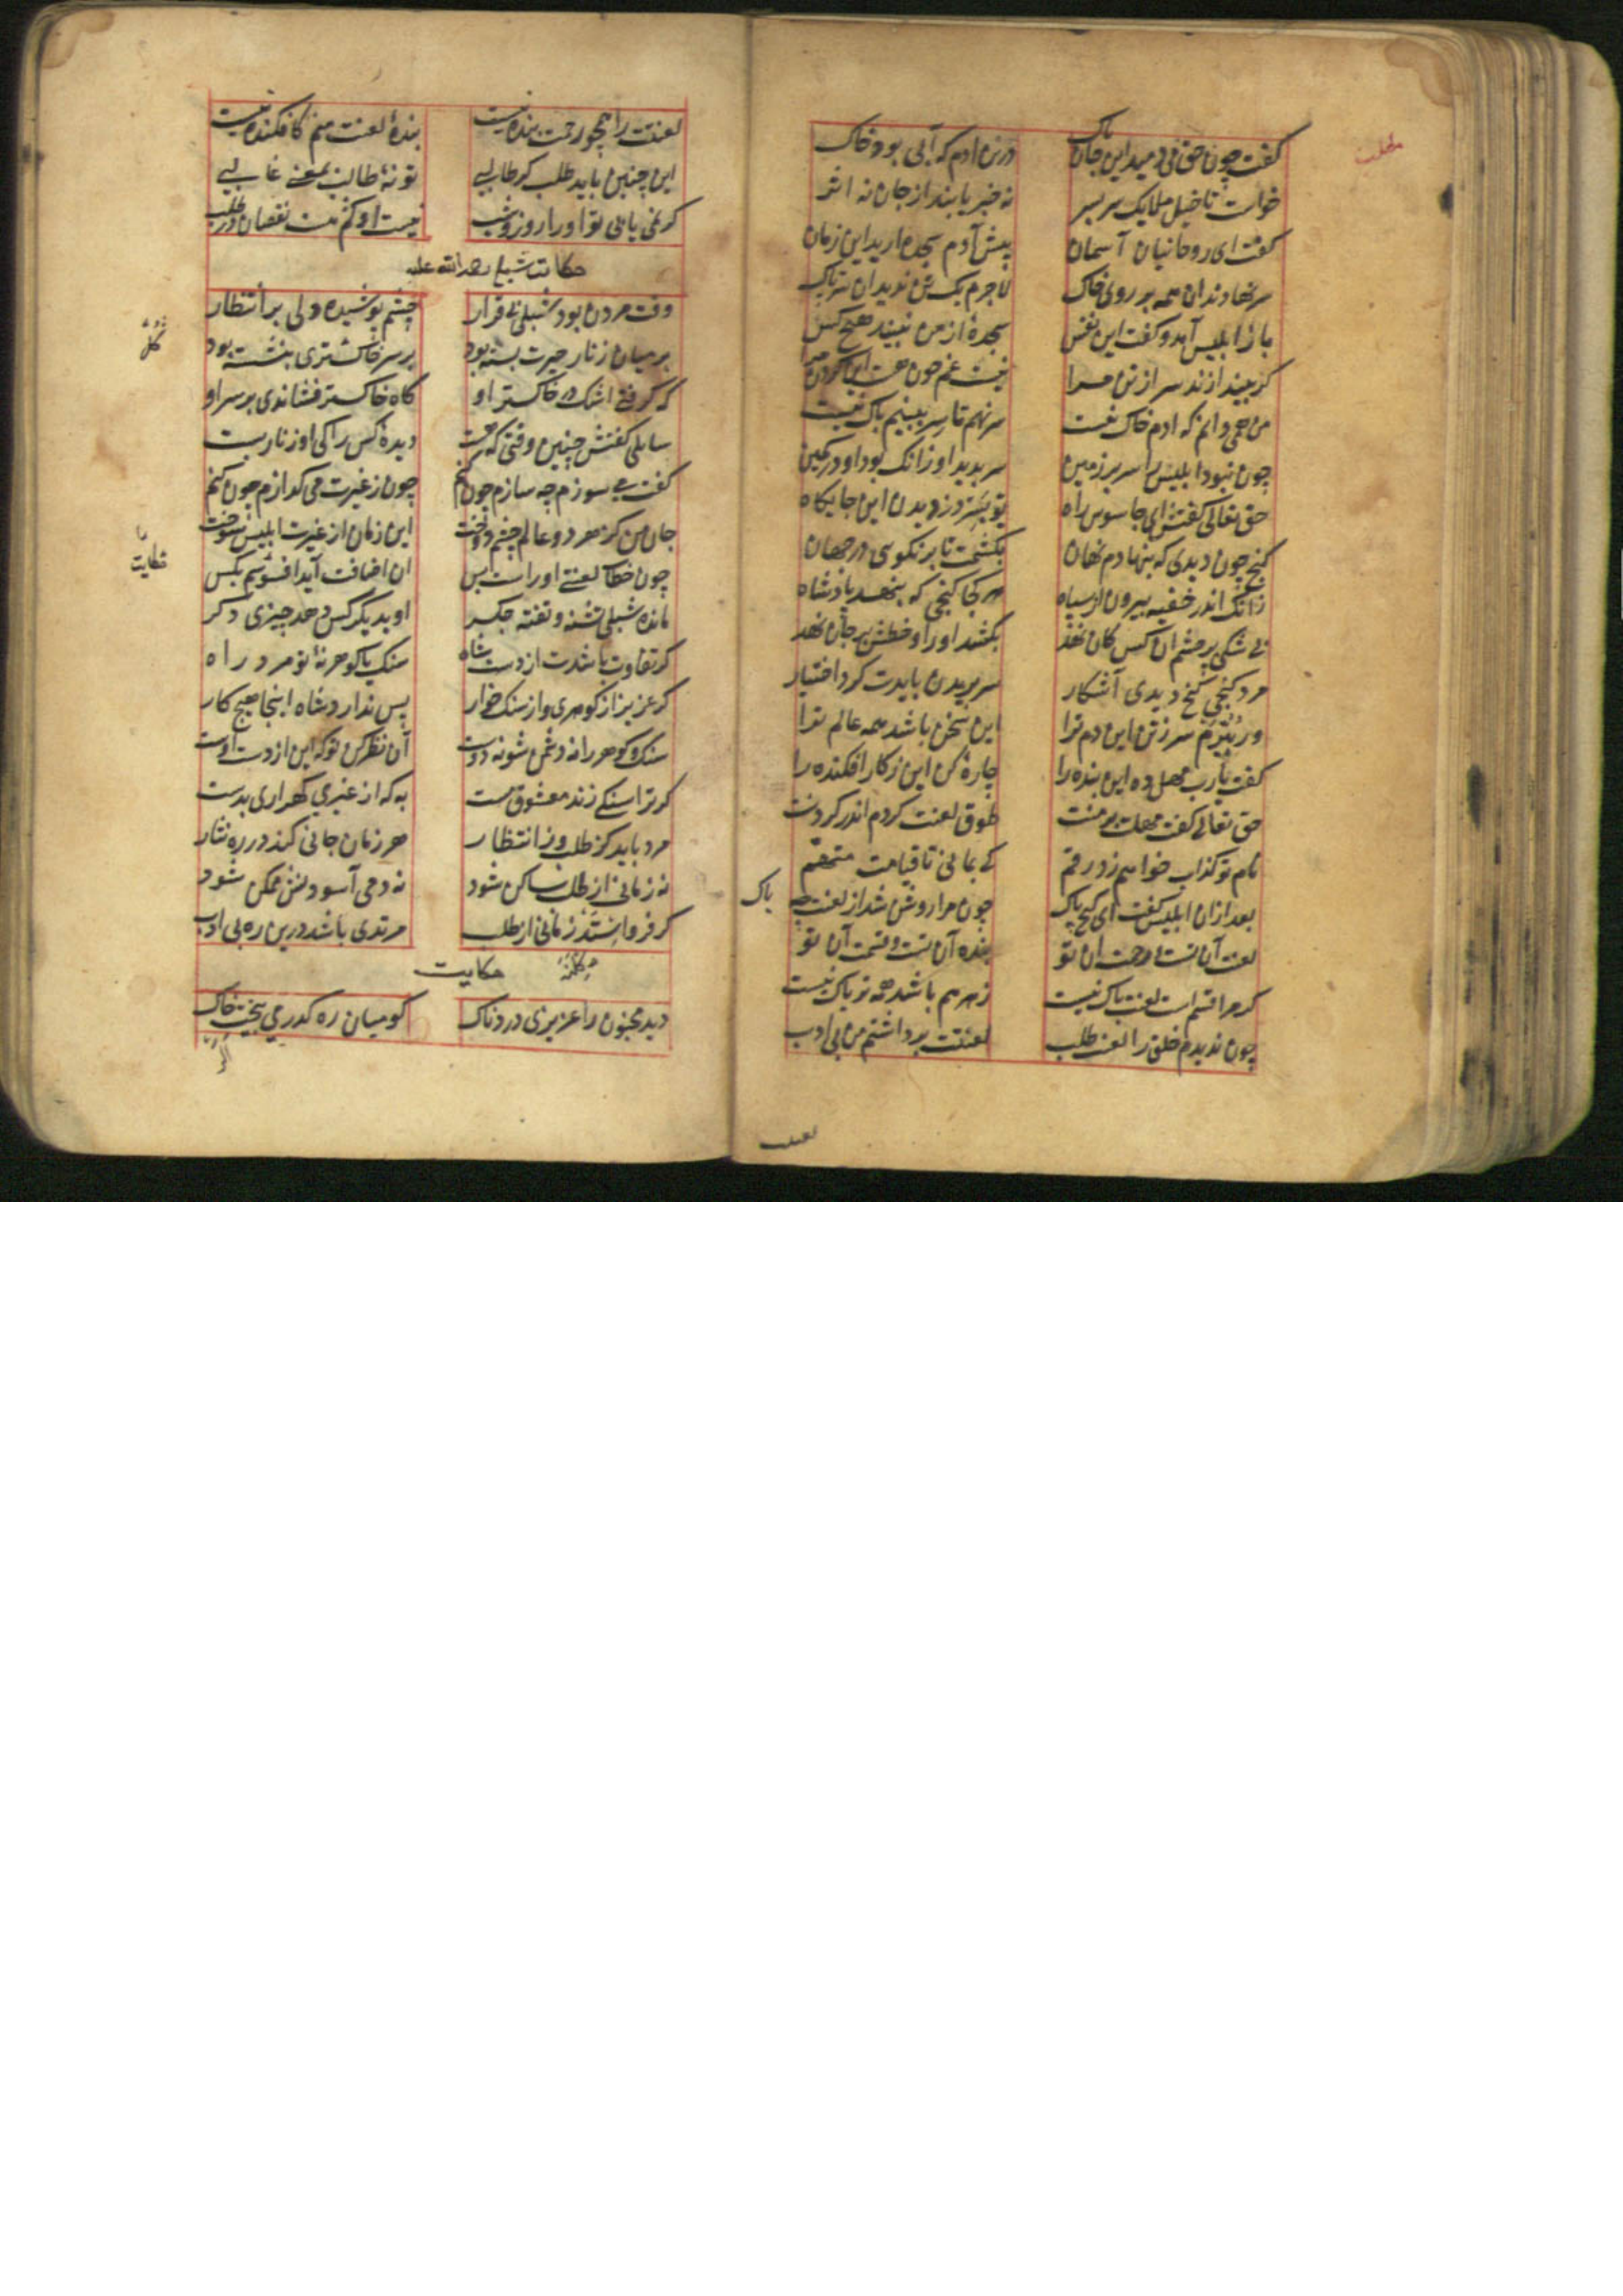 گفت چون حق می دمید این جان پاک در تن ادم که آبی بود و خاک
خواست تا خیل ملایک سر بسر نه خبر یابند از جان نه اثر
گفت ای روحانیان آسمان پیش آدم سجده ارید این زمان
سر نهادند ان همه بر روی خاک لاجرم یک تن ندید ان سر پاک
باز ابلیس آمد و گفت این نفس سجدهٔ از من نبیند هیچ کس
کر بیندازند سر از تن مرا نیست غم چون هست این گردن مرا
من همی دانم که ادم خاک نیست سر نهم تا سر ببینم باک نیست
چون نبود ابلیس را سر بر زمین سر بدید او زانک بود او در کمین
حق تعالی گفتش ای جاسوس راه تو بسر دزدیدن این جایکاه
کنج چون دیدی که بنهادم نهان بکشمت تا بر نکویی در جهان
زانک اندر خفیه بیرون از سپاه هر کجا کنجی که بنهد پادشاه
بی شکی بر چشم ان کس کان نهد بکشد او را و خطش بر جان نهد
مرد کنجی کنج دیدی آشکار سر بریدن بایدت کرد اختیار
ور نبرم سر ز تن این دم ترا این سخن باشد همه عالم ترا
گفت یارب مهل ده این بنده را چارهٔ کن این ز کار افکنده را
حق تعالی گفت مهلت بر منت طوق لعنت کردم اندر کردنت
نام تو کذاب خواهم زد رقم تا بمانی تا قیامت متهم
بعد ازان ابلیس گفت ای کنج پاک چون مرا روشن شد از لعنت چه باک
لعنت آن تست و رحمت ان تو بنده آن تست و قسمت آن تو
کر مرا قسم است لعنت باک نیست زهر هم باشد همه تریاک نیست
چون ندیدم خلق را لعنت طلب لعنتت برداشتم من بی ادب
لعنت
مهلت
باک
لعنتت را همچو رحمت بنده نیست بندهٔ لعنت منم کافکنده نیست
این چنین باید طلب کر طالبی تو نهٔ طالب بمعنی غالبی
کر نمی یابی تو او را روز و شب نیست او کم هست نقصان در طلب
حکایت شبلی رحمه الله علیه
وقت مردن بود شبلی بی قرار چشم پوشیده دلی بر انتظار
بر میان زنار حیرت بسته بود بر سر خاکستری بنشسته بود
که کرفتی اشک در خاکستر او کاه خاکستر فشاندی بر سر او
سایلی گفتش چنین وقتی که هست دیدهٔ کس را کی او زنار بست
گفت می سوزم چه سازم چون کنم چون ز غیرت می کدازم چون کنم
جان من کز هر دو عالم چشم دوخت این زمان از غیرت ابلیس سوخت
چون خطاب لعنتی او راست بس ان اضافت آید افسوسم بکس
مانده شبلی تشنه و تفته جکر او بدیگر کس دهد چیزی دکر
کر تفاوت باشدت از دست شاه سنک یا کوهر نهٔ تو مرد راه
کر عزیز از کوهری واز سنک خوار پس ندارد شاه اینجا هیچ کار
سنک و کوهر را نه دشمن شو نه دوست آن نظر کن تو که این از دست اوست
کر ترا سنکی زند معشوق مست به که از غیری کهر اری بدست
مرد باید کز طلب وز انتظار هر زمان جانی کند در ره نثار
نه زمانی از طلب ساکن شود نه دمی آسودنش ممکن شود
کر فرو استد زمانی از طلب مرتدی باشد درین ره بی ادب
حکایت
دید مجنون را عزیزی دردناک کو میان ره کذر می بیخت خاک